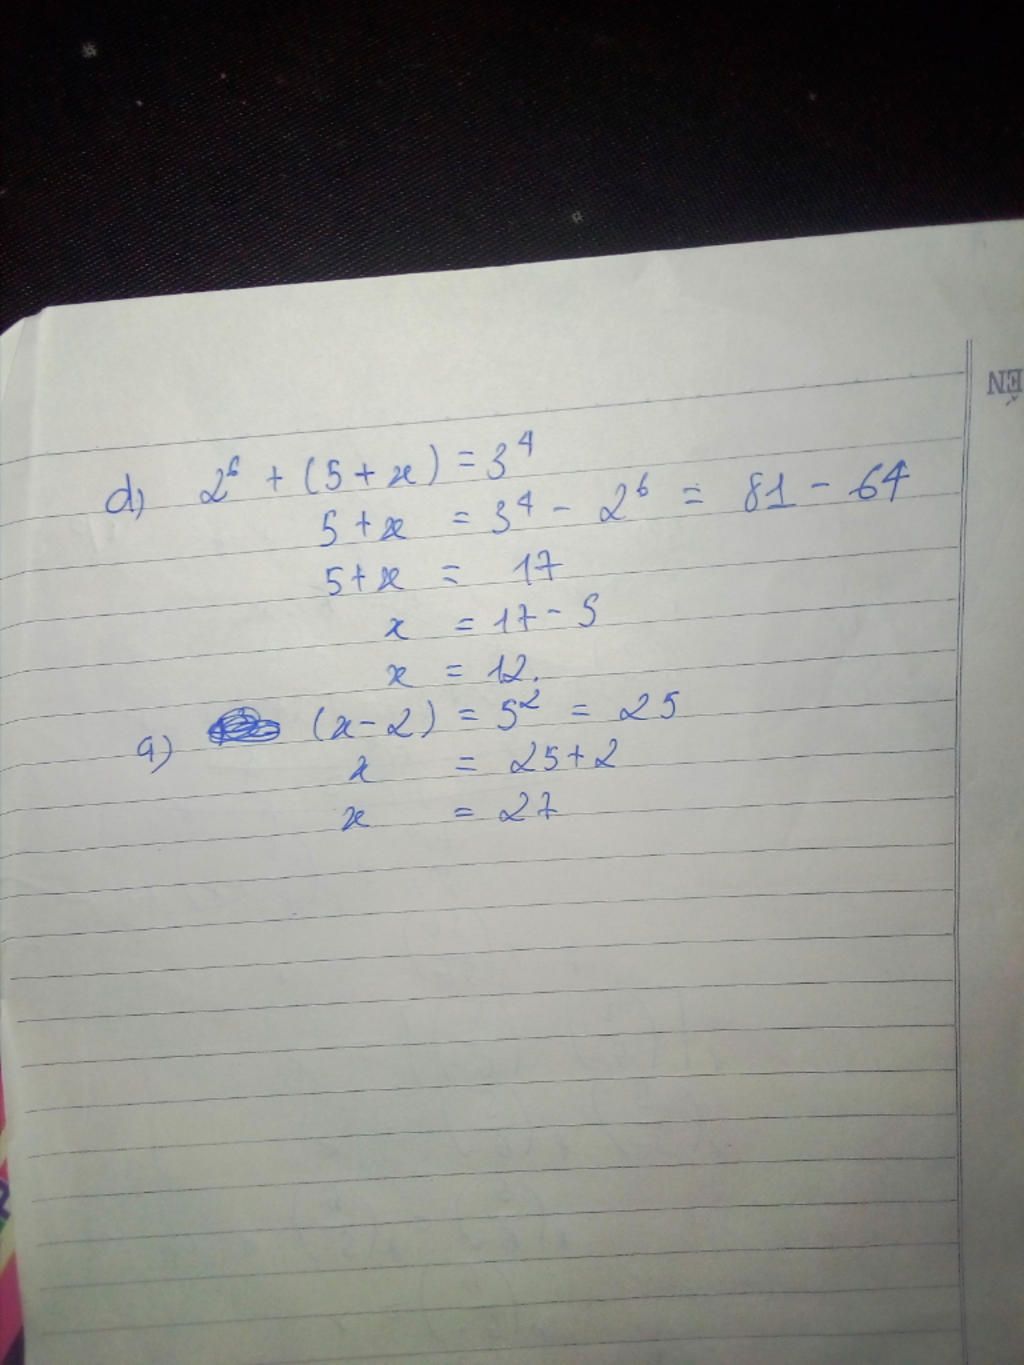 ÊN
d) 2⁶ + (5 + x) = 3⁴
5 + x = 3⁴ - 2⁶ = 81 - 64
5 + x = 17
x = 17 - 5
x = 12.
a) (x - 2) = 5² = 25
x = 25 + 2
x = 27